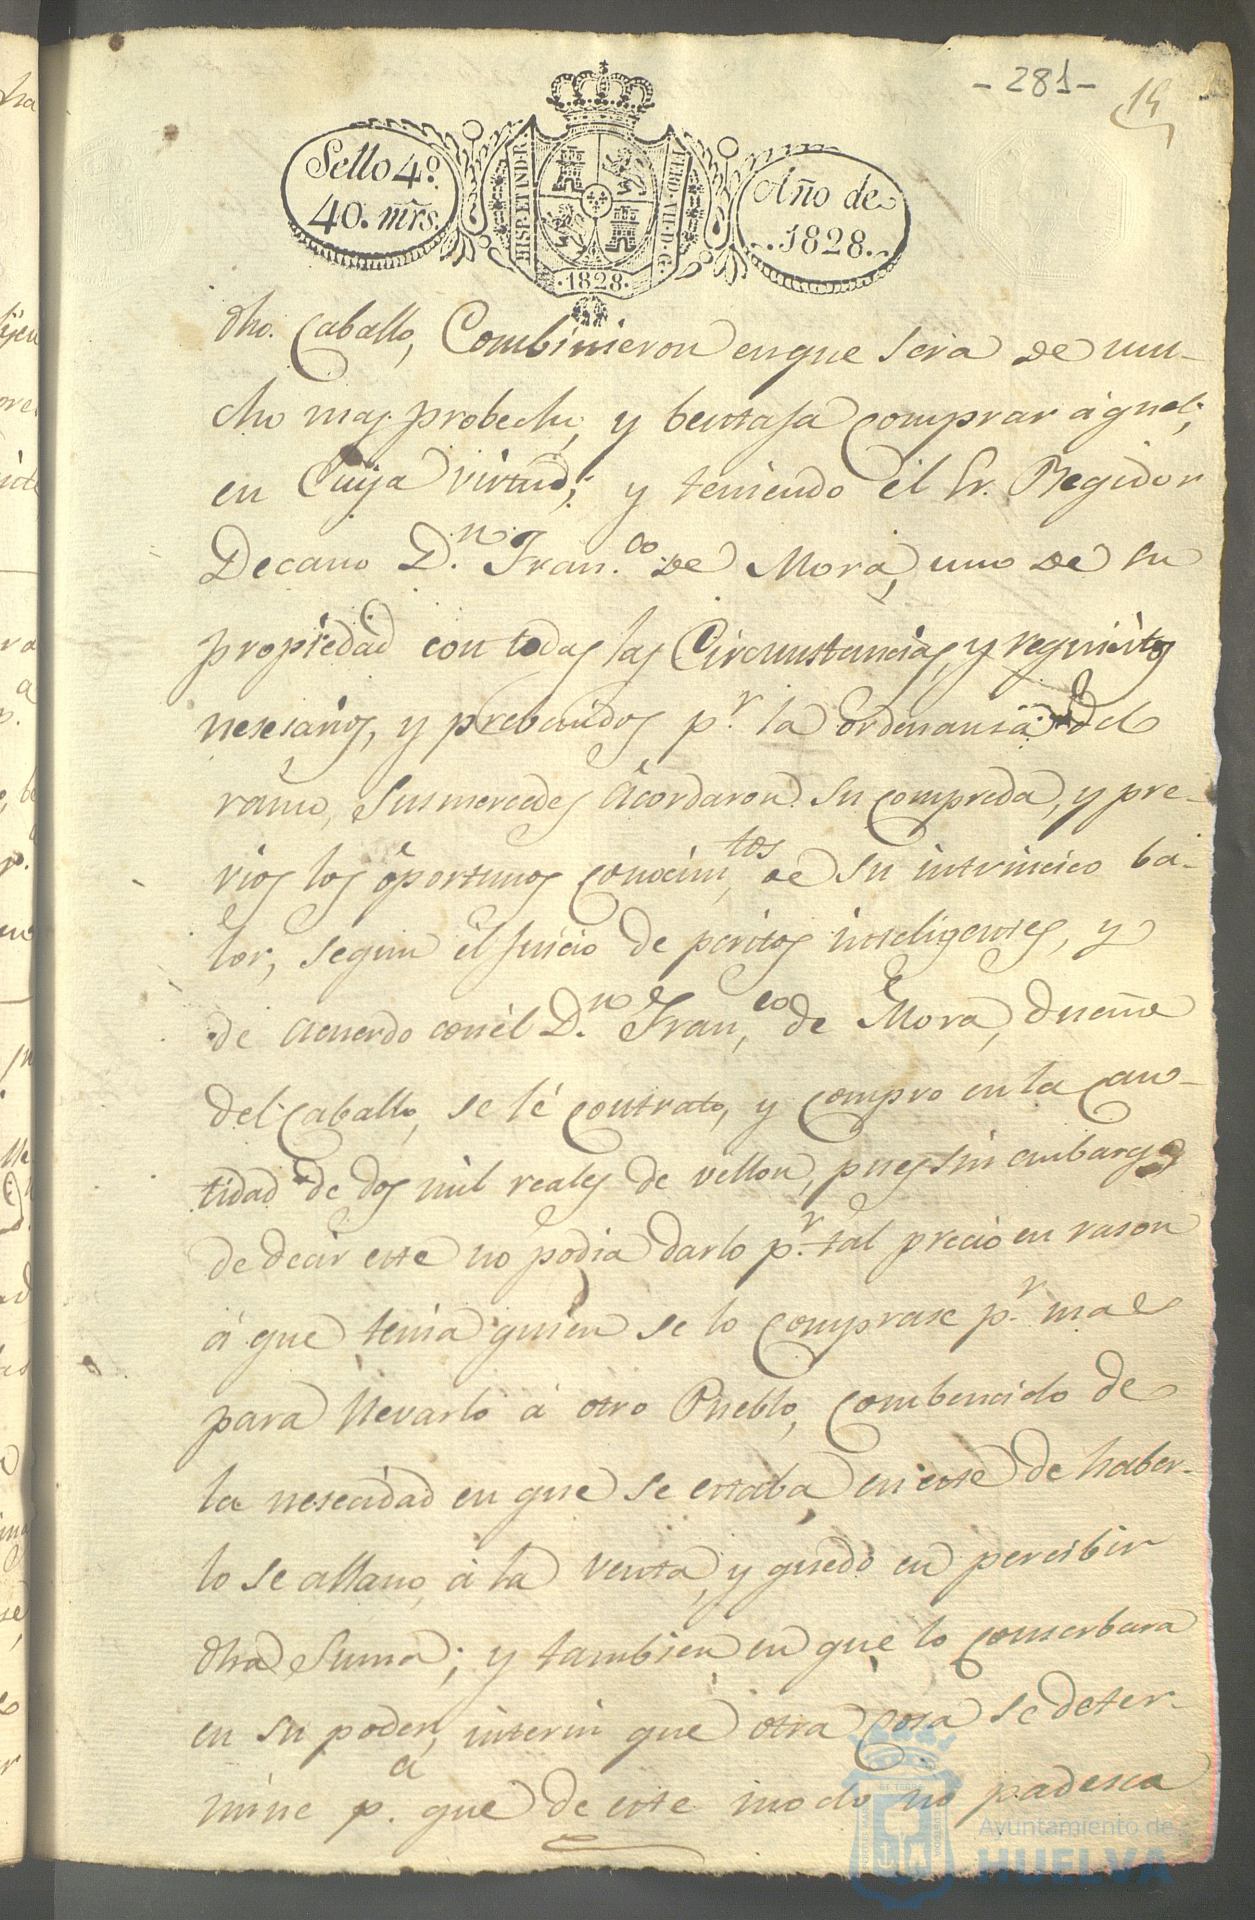 - 281 -
15
Sello 4º.
40. mrs.
HISP. ET IND. R.
FERD. VII. D. G.
·1828·
Año de
1828.
dho. Caballo, Combinieron en que sera de mu-
cho mas probecho, y bentaja comprar áquel;
en Cuya virtud; y teniendo el Sr. Regidor
Decano D.n Fran.co de Mora, uno de su
propiedad con todas las Circunstancias, y requisitos
nesesarios, y prebenidos p.r la ordenansa del
ramo, Susmercedes Acordaron su compreda, y pre-
vios los óportunos conocim.tos de su intrincico ba-
lor, segun el juicio de peritos inteligentes, y
de acuerdo con él D.n Fran.co de Mora, dueño
del Caballo, se lé contrato, y compro en la Can-
tidad de dos mil reales de vellon, pues sin embargo
de decir este no podia darlo p.r tal precio en rason
á que tenia quien se lo comprase p.r mas
para llevarlo á otro Pueblo, combencido de
la nesecidad en que se estaba en este de haber-
lo se allano á la venta, y quedo en percibir
dha Suma; y tambien en que lo conserbara
en su poder, interin que otra cosa se deter-
mine p.a que de este modo no padesca
Ayuntamiento de
HUELVA